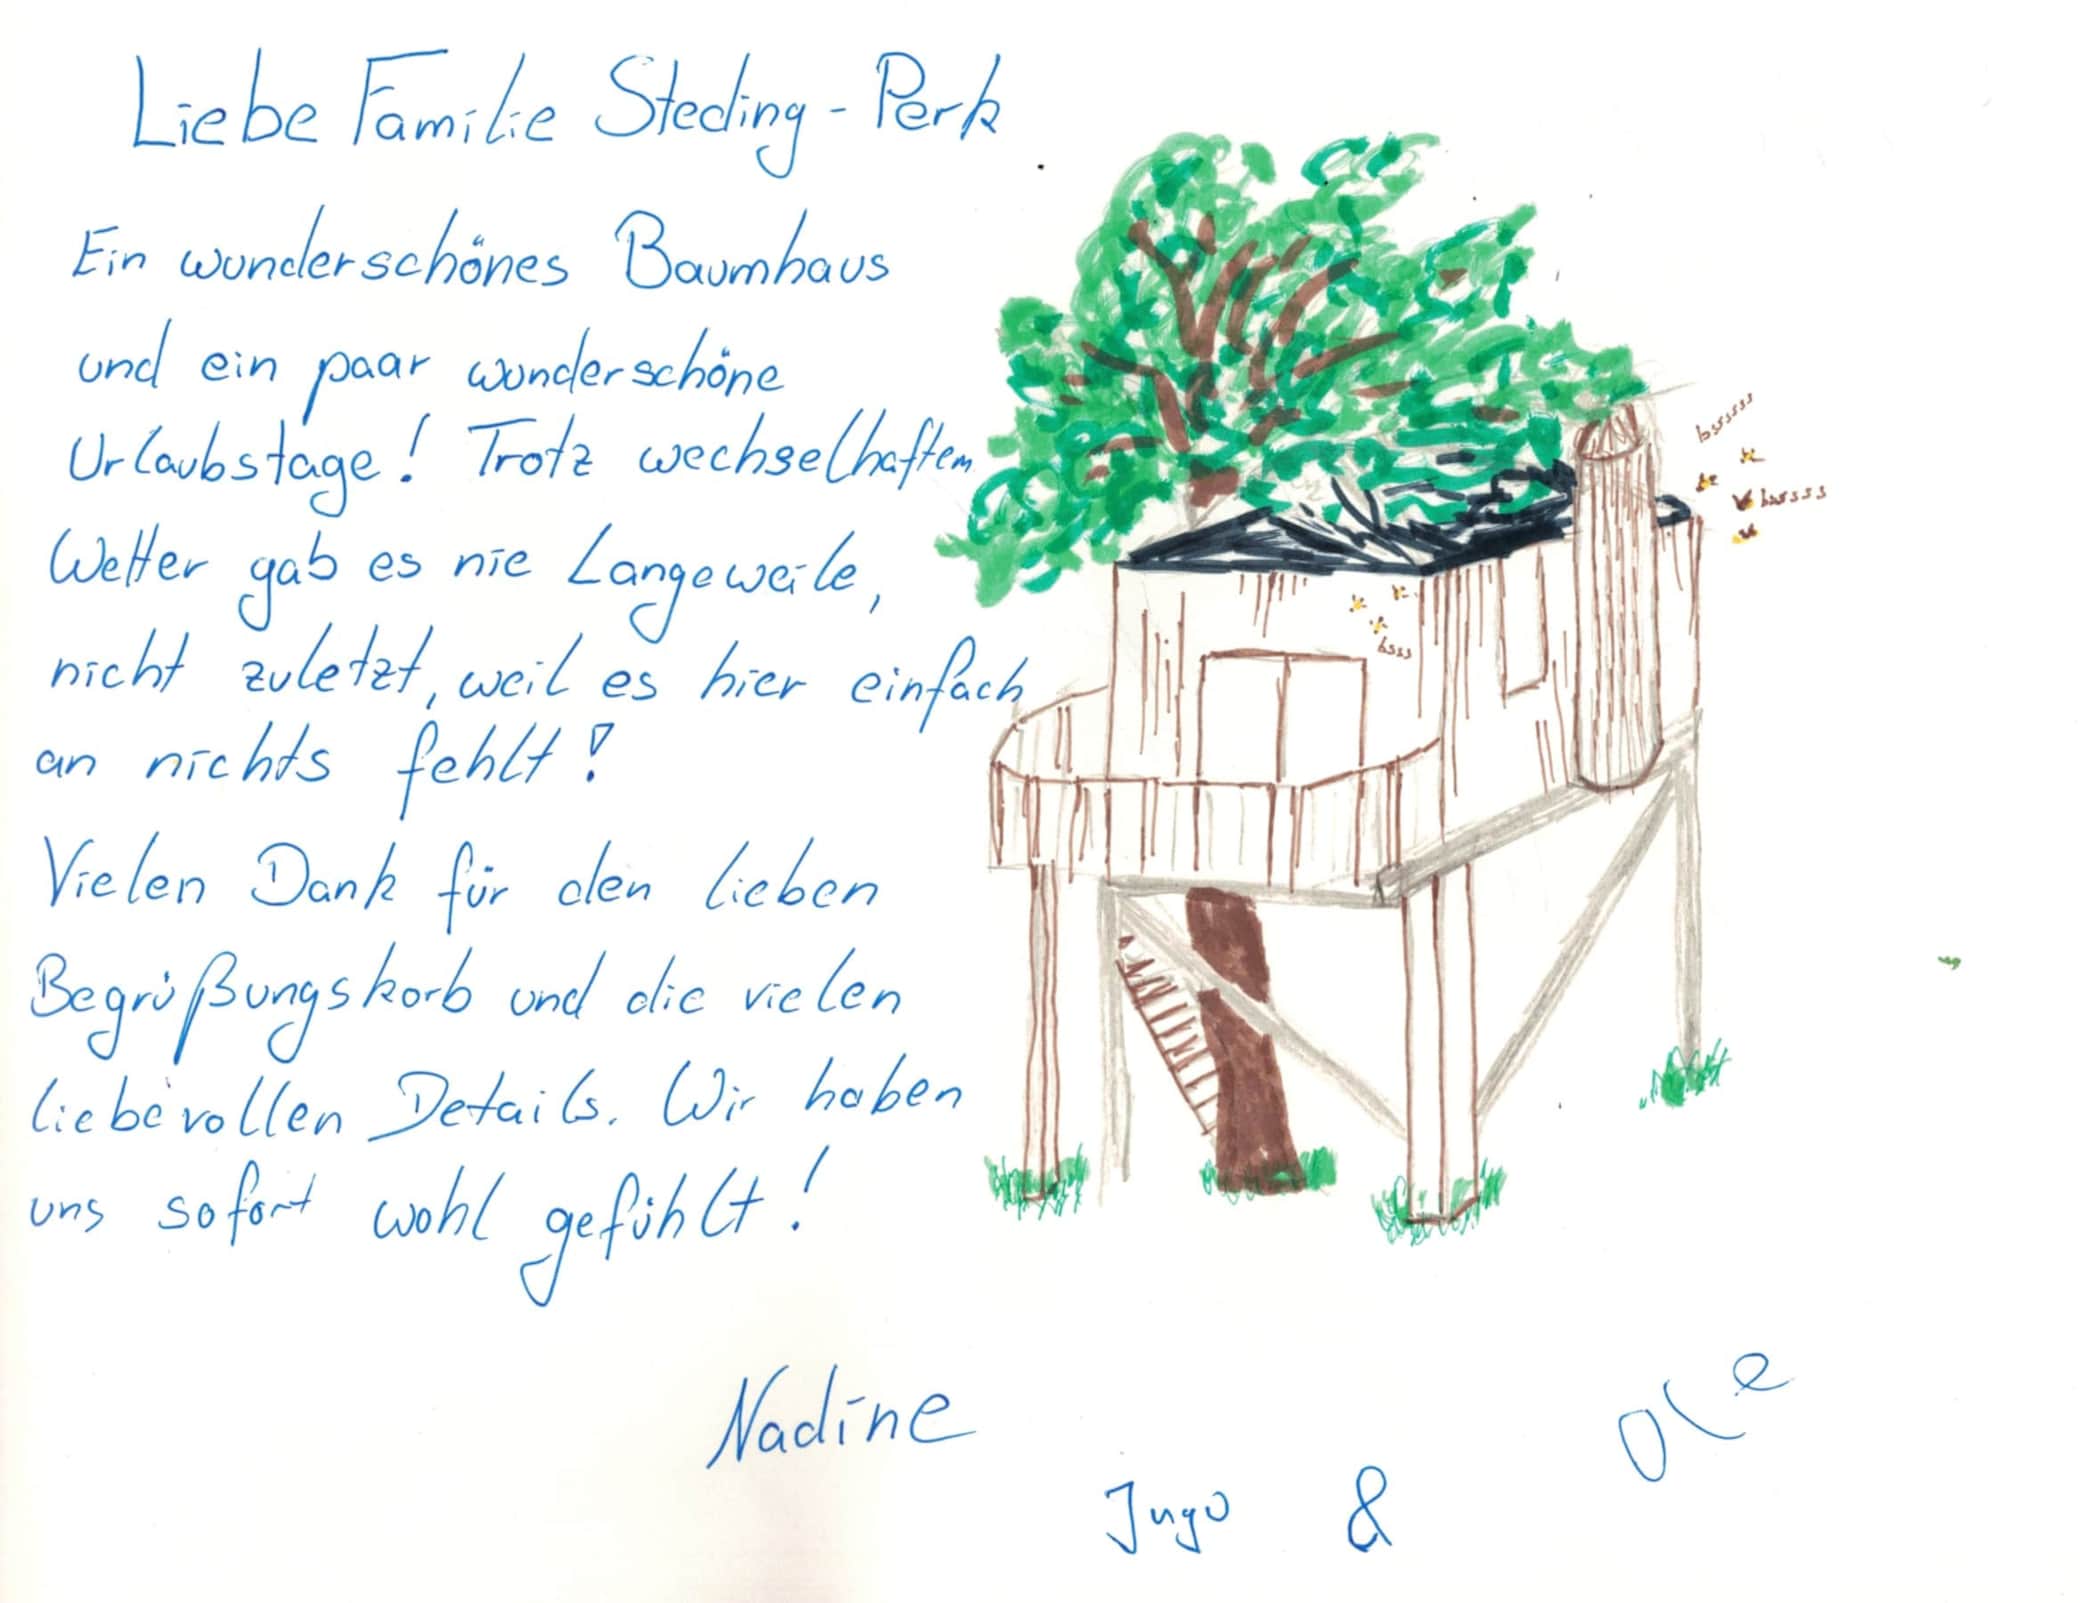 Liebe Familie Steding-Perk
Ein wunderschönes Baumhaus
und ein paar wunderschöne
Urlaubstage! Trotz wechselhaftem
Wetter gab es nie Langeweile,
nicht zuletzt, weil es hier einfach
an nichts fehlt!
Vielen Dank für den lieben
Begrüßungskorb und die vielen
liebevollen Details. Wir haben
uns sofort wohl gefühlt!
bssssss
bsssss
bsss
Nadine
Ingo &
Ole